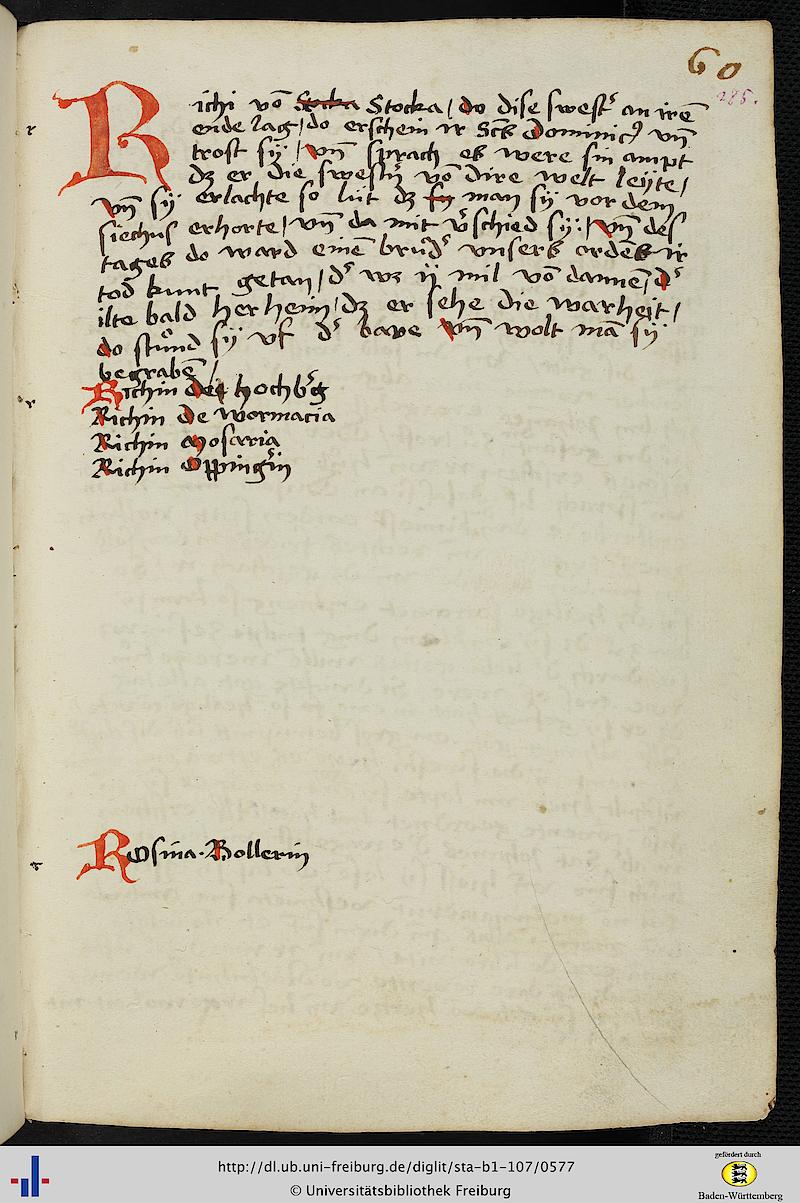 60
285.
Richi vō Stocka Stocka / do dise swestˀ an irē
ende lag / do erschein ir Sct̄s Dominicꝰ vn̄
trost sÿ / vn̄ sprach es were sin ampt
dz er die swestˀn vō dire welt leÿte /
vn̄ sÿ erlachte so lüt dz sÿ man sÿ vor dem
siechus erhorte / vn̄ da mit vˀschied sÿ / vn̄ des
tages do ward einē brůdˀ vnsers ordēs ir
tod kunt getan / dˀ wz ij mil vō dannē / dˀ
ilte bald her heim / dz er sehe die warheit /
do stůnd sÿ vf dˀ bare vn̄ wolt mā sÿ
begrabē /
Richin de hochbˀg
Richin de wormacia
Richin Mosaria
Richin Oppingˀin
Rosina · Bollerin
http://dl.ub.uni-freiburg.de/diglit/sta-b1-107/0577
© Universitätsbibliothek Freiburg
gefördert durch
Baden-Württemberg